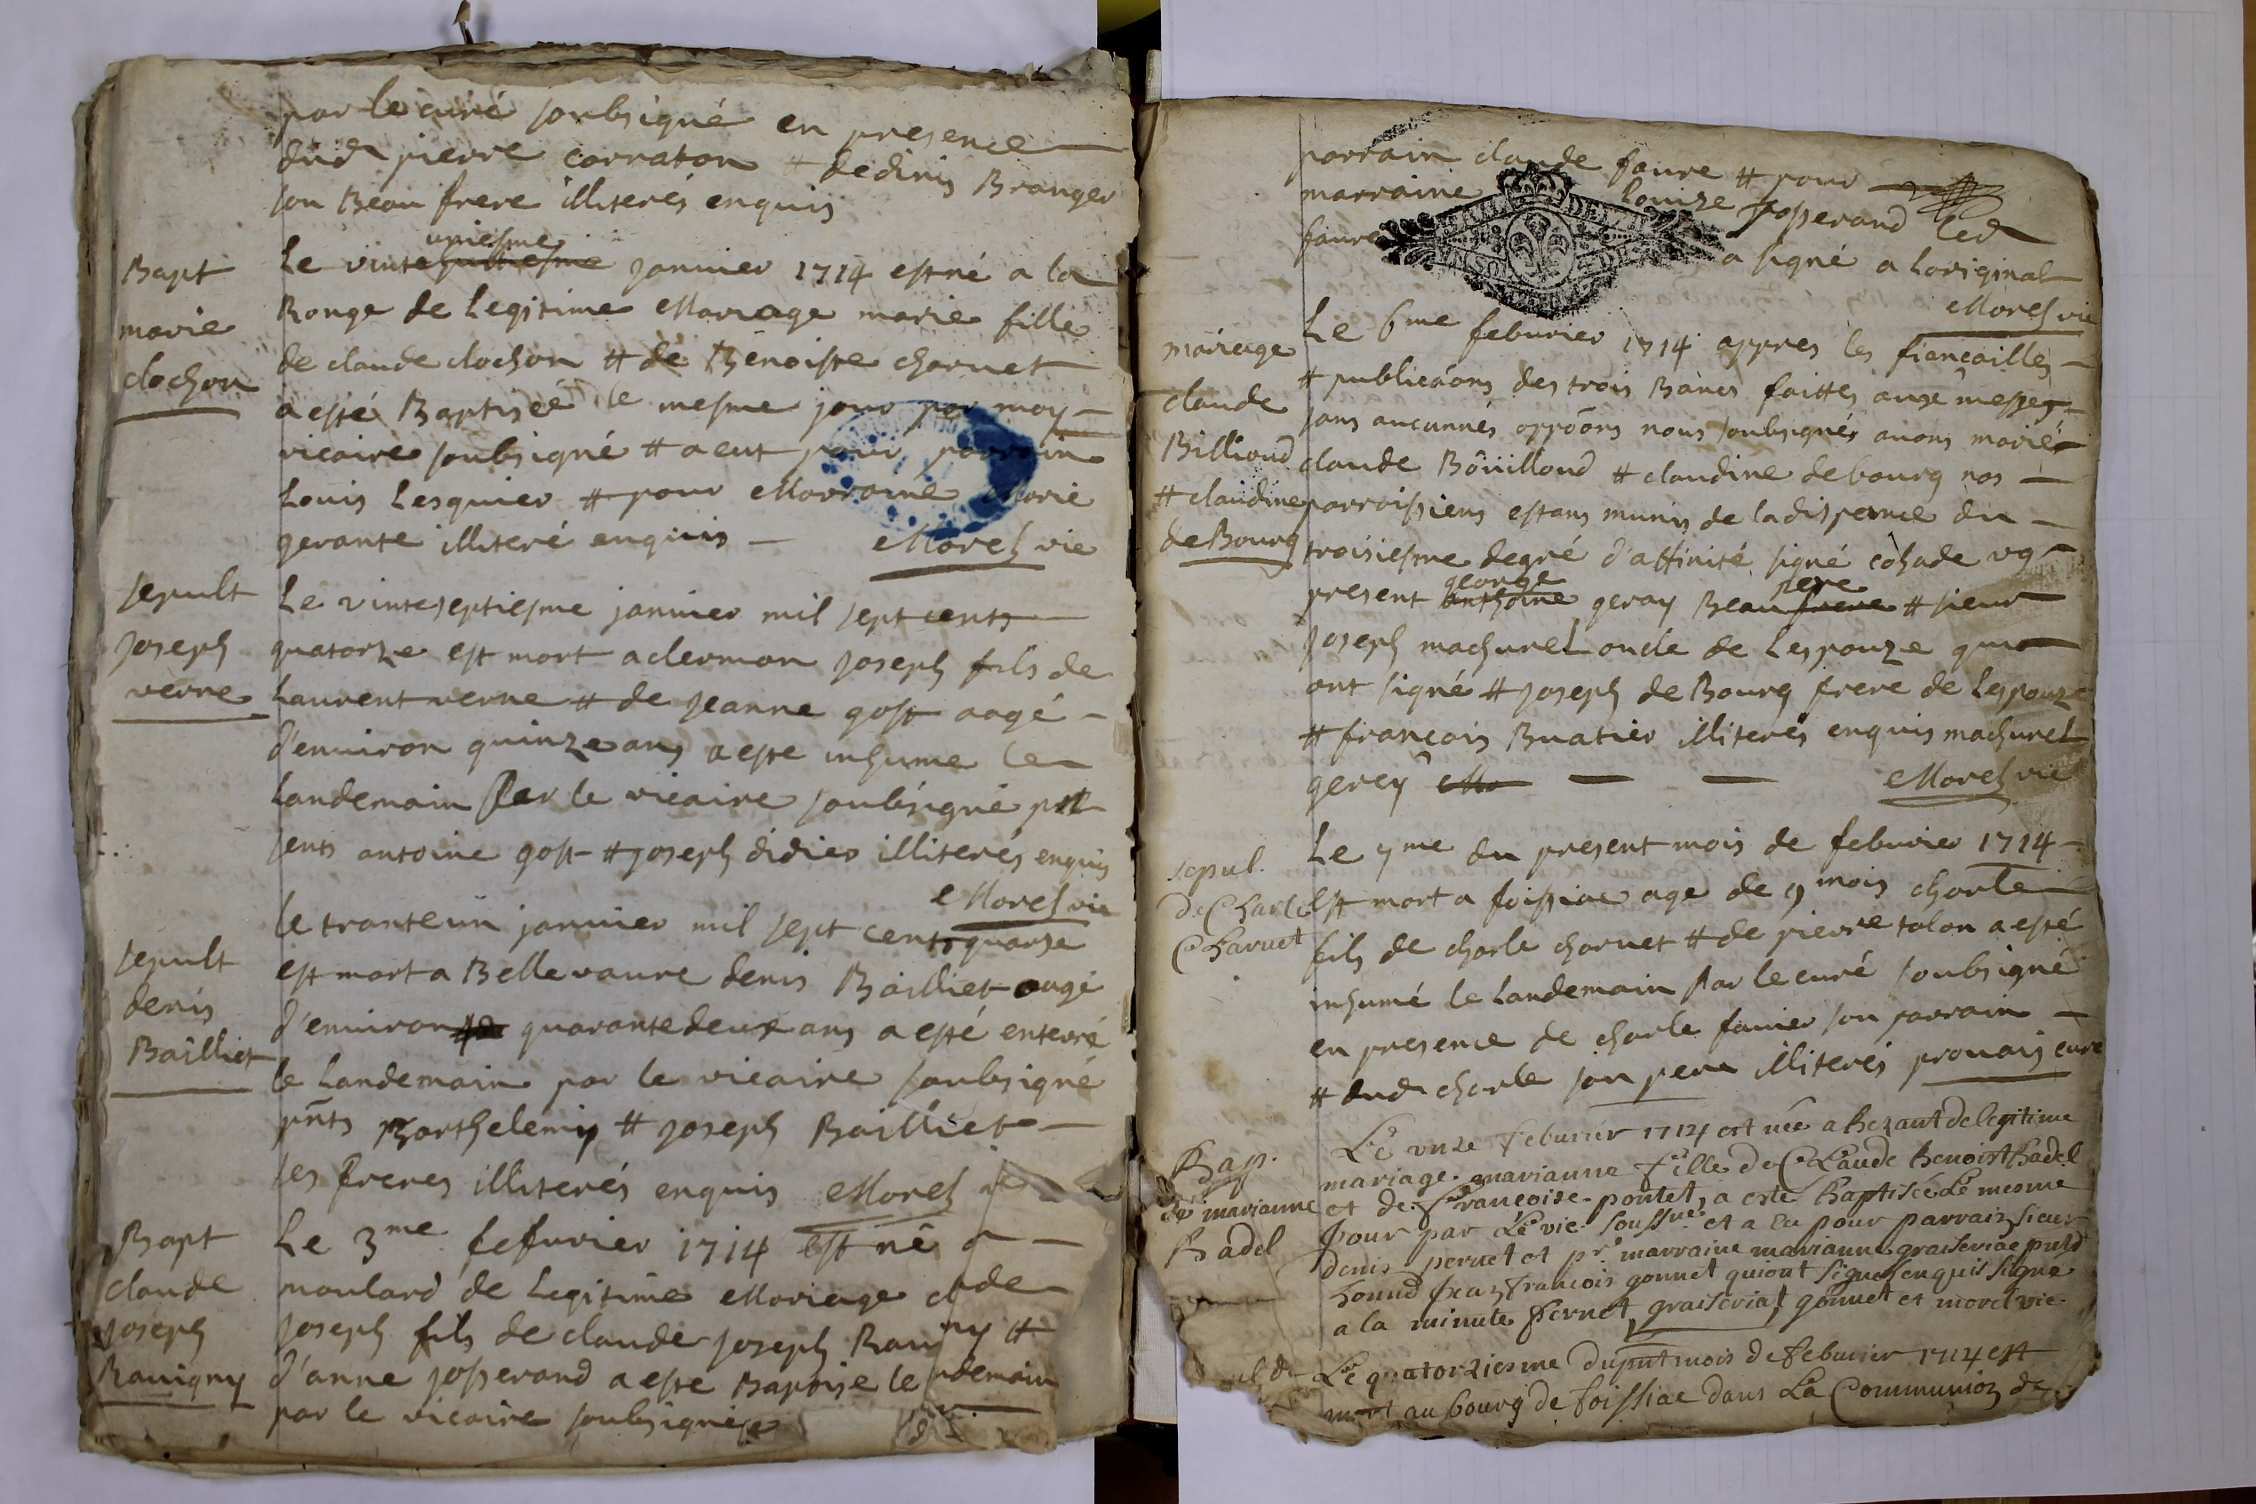 par le curé soubsigné en presence
dud pierre corraton # de dinis Branger
son Beau frere illiterés enquis
Bapt
marie
clochon
uniesme
Le vinte janvier 1714 est né a la
Ronge de Legitime Mariage marie fille
de claude clochon # de Benoiste charuet
a esté Baptiseé le mesme jour par moy
vicaire soubsigné # a eut pour parrain
Louis Lesquier # pour Marraine Marie
gerante illiteré enquis Morel vic
sepult
joseph
verne
Le vinteseptiesme janvier mil sept cents
quatorze est mort a clermon joseph fils de
Laurent verne # de jeanne gost aagé
d'environ quinze ans a esté inhume le
Landemain Par le vicaire soubsigné pnt
sents antoine gost # joseph didier illiterés enquis
Morel vic
sepult
denis
Bailliet
le tranteün janvier mil sept cents quarze
est mort a Bellevavre denis Bailliet augé
d'environ quarantedeux ans a esté enterré
le Landemain par le vicaire soubsigné
pñts Barthelemy # joseph Bailliet
ses freres illiterés enquis Morel
Bapt
claude
joseph
Ravigny
Le 3me febvrier 1714 est né a
moulard de Legitime Mariage clade
joseph fils de claude joseph Raviny #
d'anne josserand a esté Baptise le ndemain
par le vicaire soubsigné
parrain claude favre # pour
marraine Louize josserand led
favre a signé a Loriginal
Morel vic
mariage
claude
Billioud
# claudine
de Bourg
Le 6me febvrier 1714 appres les fiançailles
# publicãons des trois Bancs faittes auxe messes
sans aucunnes oppõons nous soubsignés avons mariés
claude Bôuilloud # claudine debourg nos
parroissiens estans munis de la dispence du
troisiesme degré d'affinité signé cohade vg
george pere
present anthoine geray Beau frere # sieur
joseph machurel oncle de Lespouze qui
ont signé # joseph de Bourg frere de Lespouze
# françois Buatier illiterés enquis machurel
gerey Mo Morel vic
sepul.
De Charle
Charuet
Le 7me du present mois de febvrier 1714
est mort a foissiac age de 9 mois charle
fils de charle charuet # de pierre talon a esté
inhumé le Landemain Par le curé soubsigné
en presence de charle favier son parrain
# dud charle son pere illiterés provais curé
Bap.
de marianne
Badel
Le vnze febvrier 1714 est née a bezant de legitime
mariage marianne fille de Claude Benoist Badel
et de françoise pontet, a esté Baptisée Le mesme
Jour par Le vic. soussné et a eu pour parrain sieur
denis pernet et pr marraine marianne graiseriae pntd
honnd jean françois gonnet qui ont signé enquis signe
a la minute Pernet, graiseriat gonnet et morel vic.
ul de
Le quatorziesme du pnt mois de febvrier 1714 est
mort au bourg de foissiac dans La Communion de